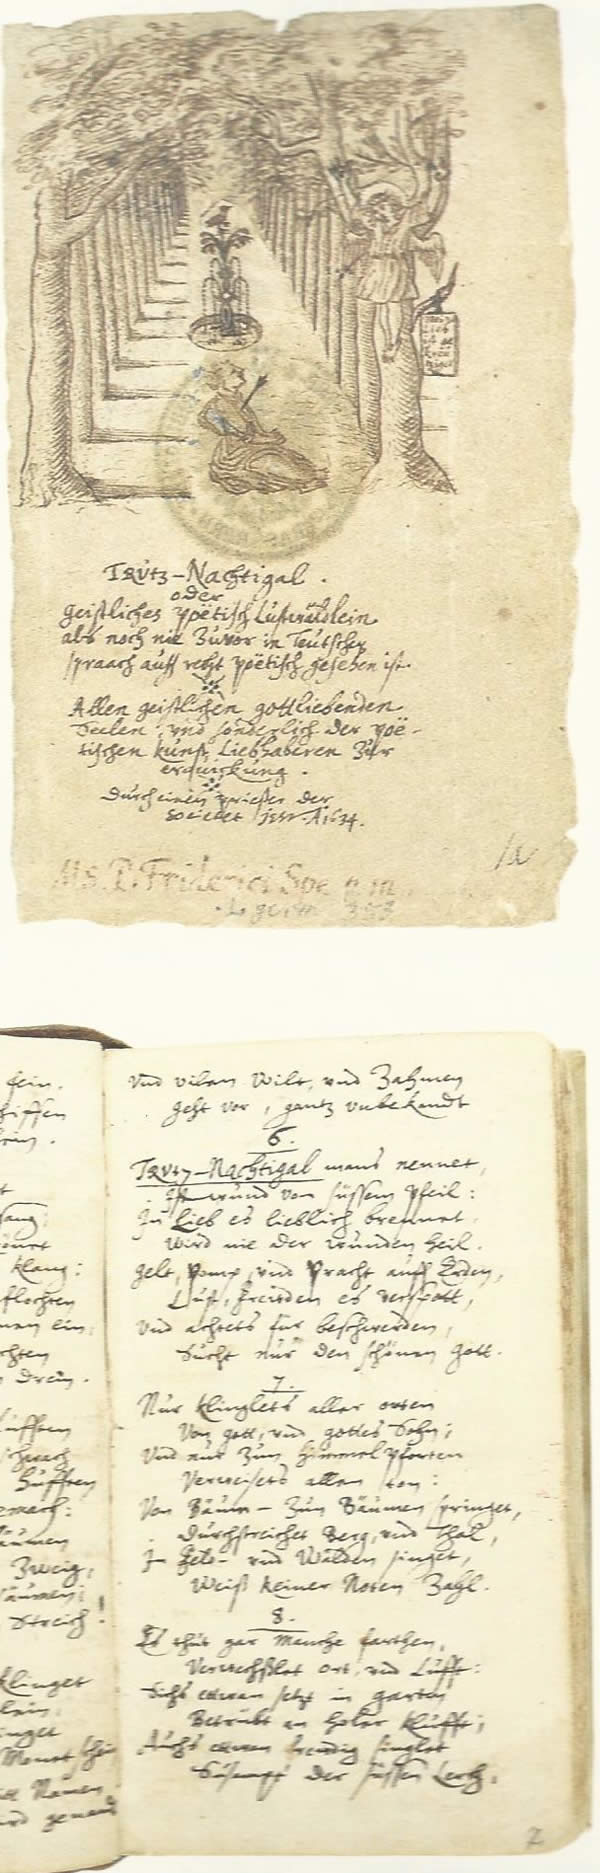 TRVtz-Nachtigal.
oder
geistliches poëtisch Lustwäldlein.
alss noch nie zuvor in Teutscher
spraach auff recht poëtisch gesehen ist.
Allen geistlichen gottliebenden
Seelen, vnd sonderlich der poë-
tischen kunst Liebhaberen zur
erquickung.
durch einen priester der
Societet Jesu. A. 1634.
1a
Ms. P. Friderici Spe
germ. 383
vnd vilen Wilt, vnd Zahmen
geht vor, gantz vnbekandt
6.
TRVtz-Nachtigal mans nennet,
Ist wund von süssem Pfeil:
In Lieb es lieblich brennet
Wird nie der wunden heil.
gelt, Pomp, vnd Pracht auff Erden,
Lust, Freuden es verspott,
Vnd achtets für beschwerden,
Sucht nur den schönen gott.
7.
Nur klinglets aller orten
Von gott, vnd gottes Sohn;
Vnd nur zun himmelpforten
Verweisets allen ton:
Von Bäum- zun Bäumen springet,
Durchstreichet Berg, vnd Thal,
In Feld- vnd Wälden singet,
Weiß keiner Noten Zahl.
8.
Es thut gar manche farthen,
Verwechßlet ort, vnd Lufft:
Sichs etwan setzt in garten
Betrübt an holer klufft;
Auchs etwan freudig singlet
der süssen Lerch,
fein.
klang:
flochten
drein.
Zweig,
Streich!
klinget
Namen
2